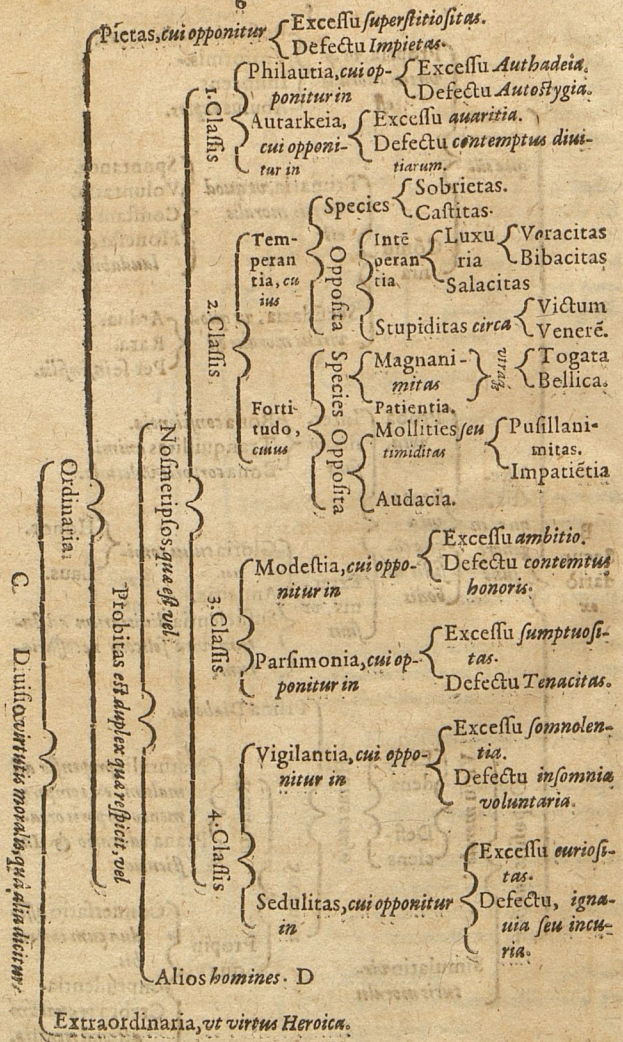 C. Diuisio virtutis moralis, quâ alia dicitur:
Ordinaria.
Pietas, cui opponitur
Excessu superstitiositas.
Defectu Impietas.
Probitas est duplex quâ respicit, vel
Nosmetipsos, quæ est vel
1. Classis
Philautia, cui op-
ponitur in
Excessu Authadeia.
Defectu Autostygia.
Autarkeia,
cui opponi-
tur in
Excessu auaritia.
Defectu contemptus diui-
tiarum.
2. Classis
Tem-
peran
tia, cu
ius
Species
Sobrietas.
Castitas.
Opposita
Intē
peran
tia
Luxu
ria
Voracitas
Bibacitas
Salacitas
Stupiditas circa
Victum
Venerē.
Forti-
tudo,
cuius
Species
Magnani-
mitas
Patientia.
vtraq;
Togata
Bellica.
Opposita
Mollities seu
timiditas
Pusillani-
mitas.
Impatiētia
Audacia.
3. Classis
Modestia, cui oppo-
nitur in
Excessu ambitio.
Defectu contemtus
honoris.
Parsimonia, cui op-
ponitur in
Excessu sumptuosi-
tas.
Defectu Tenacitas.
4. Classis
Vigilantia, cui oppo-
nitur in
Excessu somnolen-
tia.
Defectu insomnia
voluntaria.
Sedulitas, cui opponitur
in
Excessu euriosi-
tas.
Defectu, igna-
uia seu incu-
ria.
Alios homines. D
Extraordinaria, vt virtus Heroica.